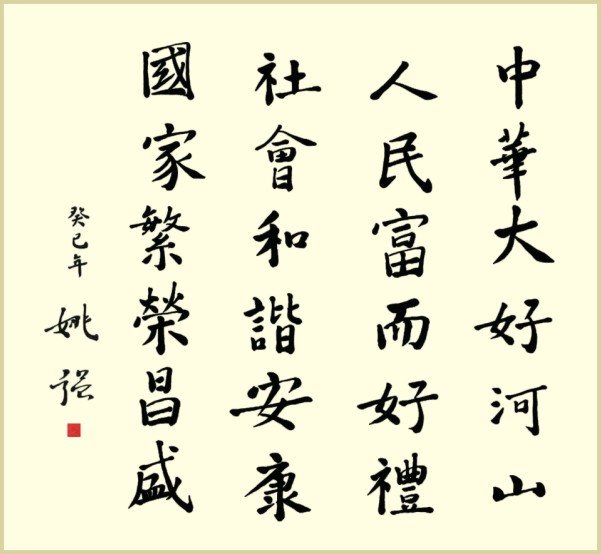 中華大好河山
人民富而好禮
社會和諧安康
國家繁榮昌盛
癸巳年
姚强